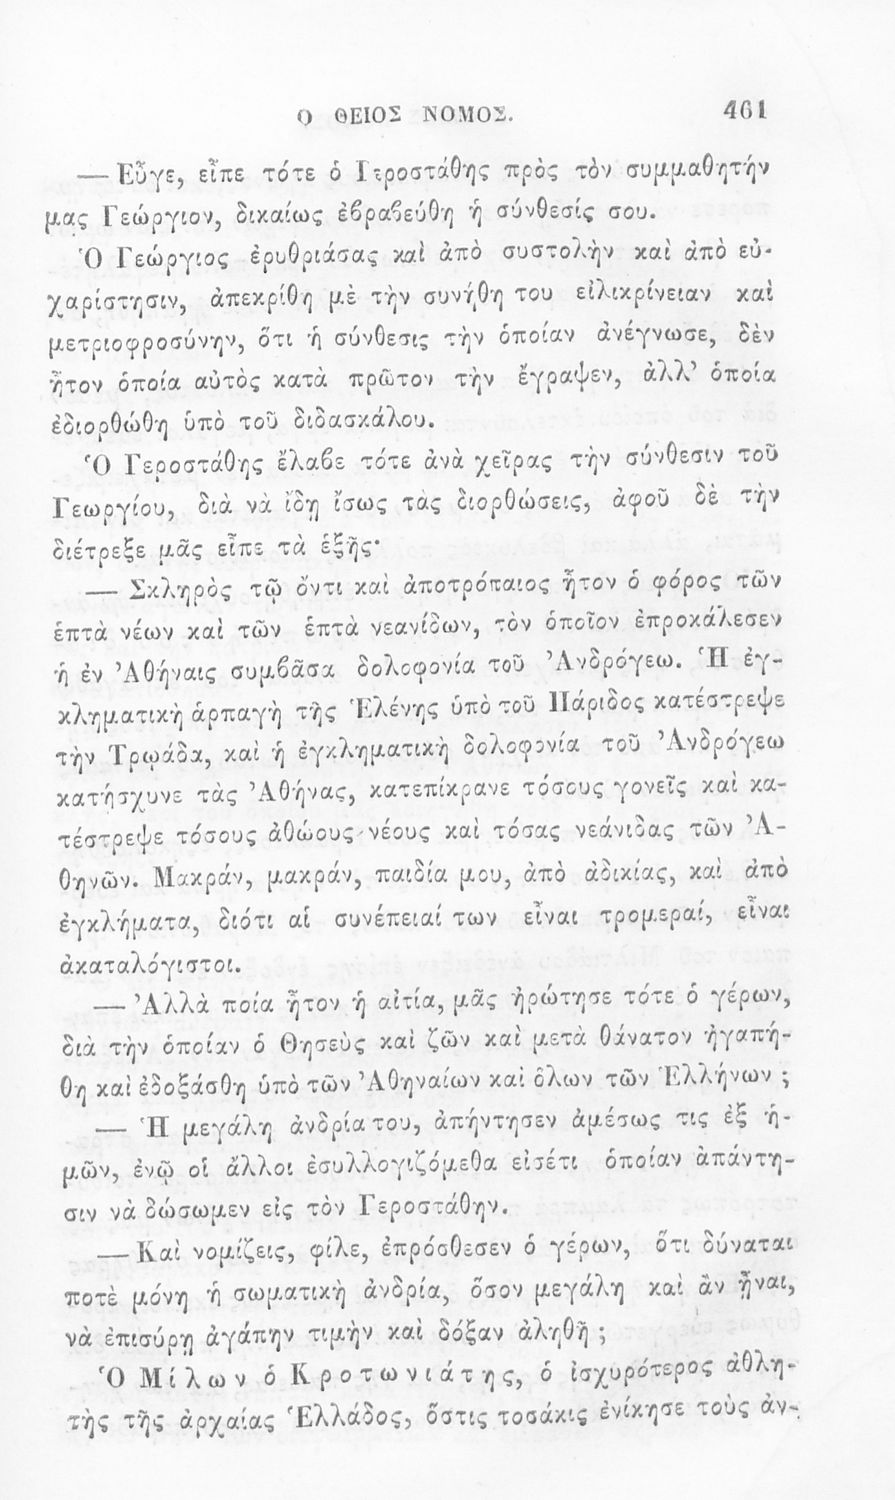 Ο ΘΕΙΟΣ ΝΟΜΟΣ. 461
— Εὖγε, εἶπε τότε ὁ Γεροστάθης πρὸς τὸν συμμαθητήν
μας Γεώργιον, δικαίως ἐβραβεύθη ἡ σύνθεσίς σου.
Ὁ Γεώργιος ἐρυθριάσας καὶ ἀπὸ συστολὴν καὶ ἀπὸ εὐ-
χαρίστησιν, ἀπεκρίθη μὲ τὴν συνήθη του εἰλικρίνειαν καὶ
μετριοφροσύνην, ὅτι ἡ σύνθεσις τὴν ὁποίαν ἀνέγνωσε, δὲν
ἦτον ὁποία αὐτὸς κατὰ πρῶτον τὴν ἔγραψεν, ἀλλ’ ὁποία
ἐδιορθώθη ὑπὸ τοῦ διδασκάλου.
Ὁ Γεροστάθης ἔλαβε τότε ἀνὰ χεῖρας τὴν σύνθεσιν τοῦ
Γεωργίου, διὰ νὰ ἴδῃ ἴσως τὰς διορθώσεις, ἀφοῦ δὲ τὴν
διέτρεξε μᾶς εἶπε τὰ ἑξῆς·
— Σκληρὸς τῷ ὄντι καὶ ἀποτρόπαιος ἦτον ὁ φόρος τῶν
ἑπτὰ νέων καὶ τῶν ἑπτὰ νεανίδων, τὸν ὁποῖον ἐπροκάλεσεν
ἡ ἐν Ἀθήναις συμβᾶσα δολοφονία τοῦ Ἀνδρόγεω. Ἡ ἐγ-
κληματικὴ ἁρπαγὴ τῆς Ἑλένης ὑπὸ τοῦ Πάριδος κατέστρεψε
τὴν Τρῳάδα, καὶ ἡ ἐγκληματικὴ δολοφονία τοῦ Ἀνδρόγεω
κατήσχυνε τὰς Ἀθήνας, κατεπίκρανε τόσους γονεῖς καὶ κα-
τέστρεψε τόσους ἀθώους νέους καὶ τόσας νεάνιδας τῶν Ἀ-
θηνῶν. Μακράν, μακράν, παιδία μου, ἀπὸ ἀδικίας, καὶ ἀπὸ
ἐγκλήματα, διότι αἱ συνέπειαί των εἶναι τρομεραί, εἶναι
ἀκαταλόγιστοι.
— Ἀλλὰ ποία ἦτον ἡ αἰτία, μᾶς ἠρώτησε τότε ὁ γέρων,
διὰ τὴν ὁποίαν ὁ Θησεὺς καὶ ζῶν καὶ μετὰ θάνατον ἠγαπή-
θη καὶ ἐδοξάσθη ὑπὸ τῶν Ἀθηναίων καὶ ὅλων τῶν Ἑλλήνων ;
— Ἡ μεγάλη ἀνδρία του, ἀπήντησεν ἀμέσως τις ἐξ ἡ-
μῶν, ἐνῷ οἱ ἄλλοι ἐσυλλογιζόμεθα εἰσέτι ὁποίαν ἀπάντη-
σιν νὰ δώσωμεν εἰς τὸν Γεροστάθην.
— Καὶ νομίζεις, φίλε, ἐπρόσθεσεν ὁ γέρων, ὅτι δύναται
ποτὲ μόνη ἡ σωματικὴ ἀνδρία, ὅσον μεγάλη καὶ ἂν ᾖναι,
νὰ ἐπισύρῃ ἀγάπην τιμὴν καὶ δόξαν ἀληθῆ ;
Ὁ Μίλων ὁ Κροτωνιάτης, ὁ ἰσχυρότερος ἀθλη-
τὴς τῆς ἀρχαίας Ἑλλάδος, ὅστις τοσάκις ἐνίκησε τοὺς ἀν-